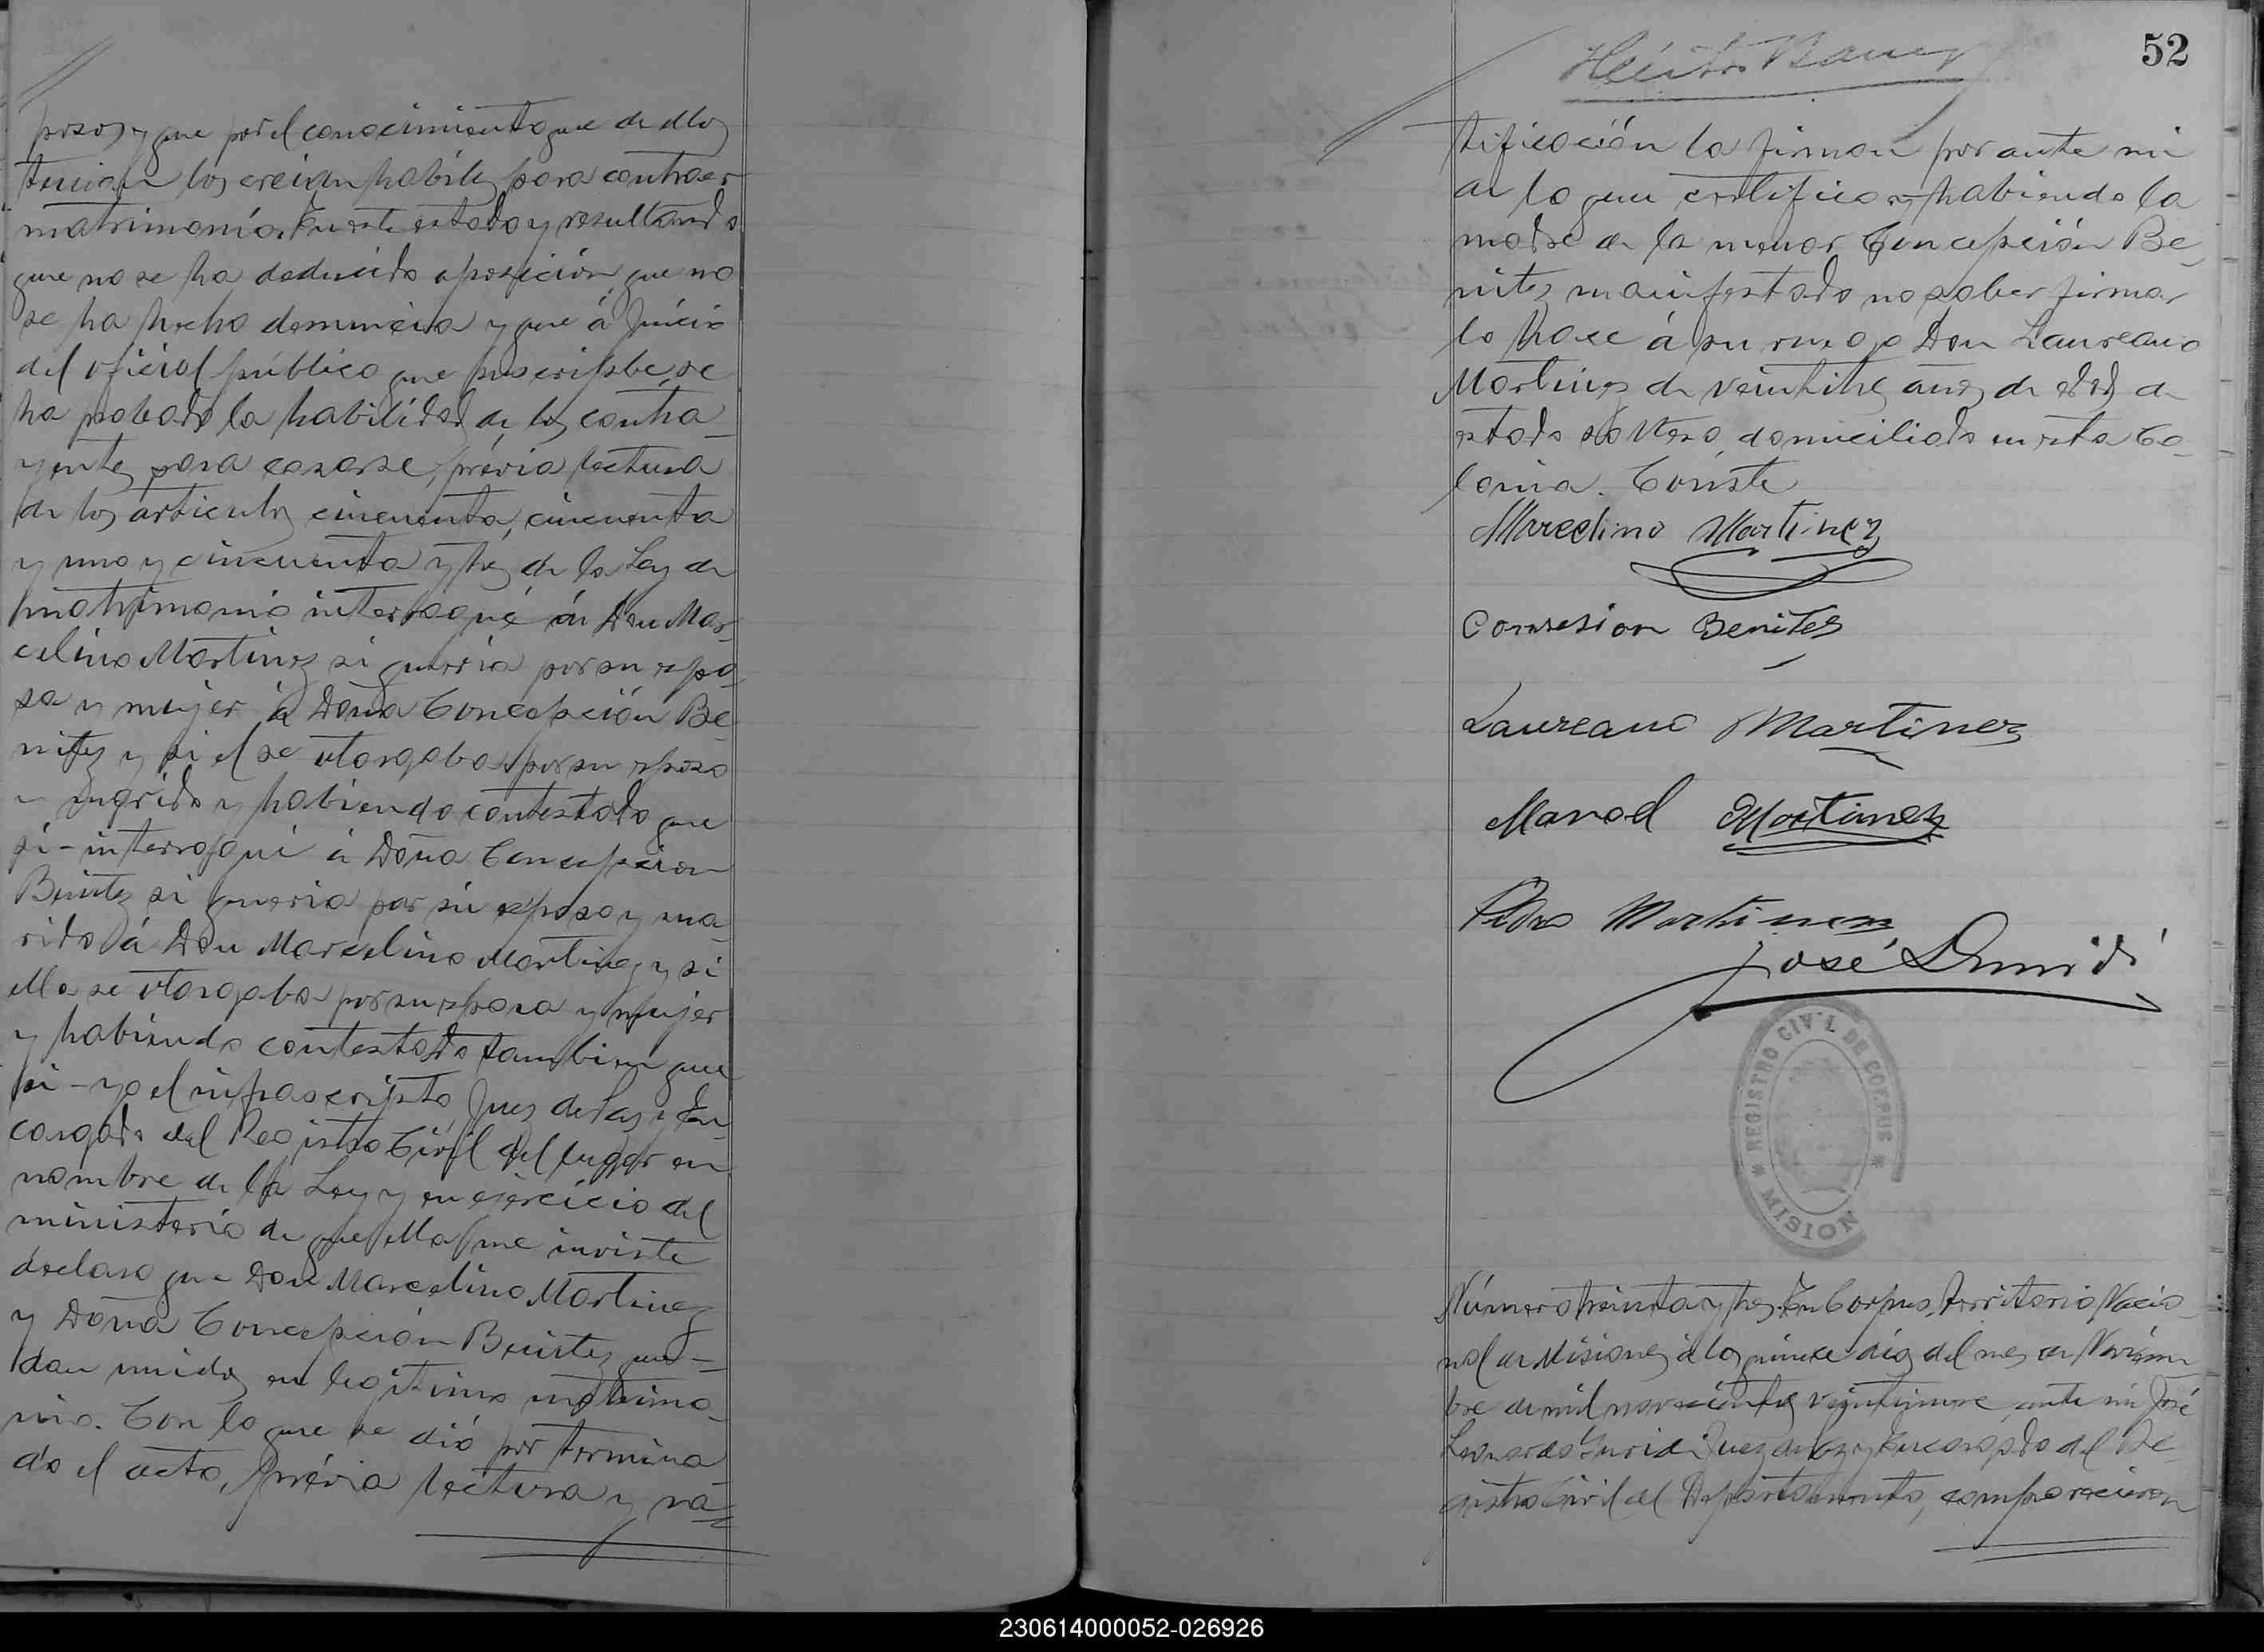 posos y que por el conocimiento que de ellos
tenian los creian habiles para contraer
matrimonio. En este estado y resultando
que no se ha deducido oposición, que no
se ha hecho denuncia y que á juicio
del oficial público que suscripbe, se
ha probado la habilidad de los contra-
yentes para casarse, prévia lectura
de los articulos cincuenta, cincuenta
y uno y cincuenta y tres de la Ley de
matrimonio interrogué á Don Mar-
celino Martinez si queria por su espo-
sa y mujer á Doña Concepción Be-
nitez y si el se otorgaba por su esposo
y marido y habiendo contestado que
si - interrogué á Doña Concepcion
Benitez si queria por su esposo y ma-
rido á Don Marcelino Martinez y si
ella se otorgaba por su esposa y mujer
y habiendo contestado tambien que
si - yo el infrascripto Juez de Paz y En-
cargado del Registro Civil del lugar en
nombre de la Ley y en ejercicio del
ministerio de que ella me inviste
declaro que Don Marcelino Martinez
y Doña Concepción Benitez que-
dan unidos en legitimo matrimo-
nio. Con lo que se dió por termina
do el acto, prévia lectura y ra-
52
tificación la firman por ante mi
de lo que certifico y habiendo la
madre de la menor Concepción Be-
nitez manifestado no saber firmar
lo hace á su ruego Don Laureano
Martinez de veintitres años de edad de
estado soltero, domiciliado en esta Co-
lonia. Conste
Marcelino Martinez
Consesion Benites
Laureano Martinez
Manoel Martinez
Pedro Martinez
José
REGISTRO CIVIL DE CORPUS
MISIONES
Número treinta y tres. En Corpus, Territorio Nacio-
nal de Misiones á los quince dias del mes de Noviem
bre de mil novecientos veintinueve, ante mi José
Leonardo Juez de Paz y Encargado del Re-
gistro Civil del Departamento, comparecieron
230614000052-026926